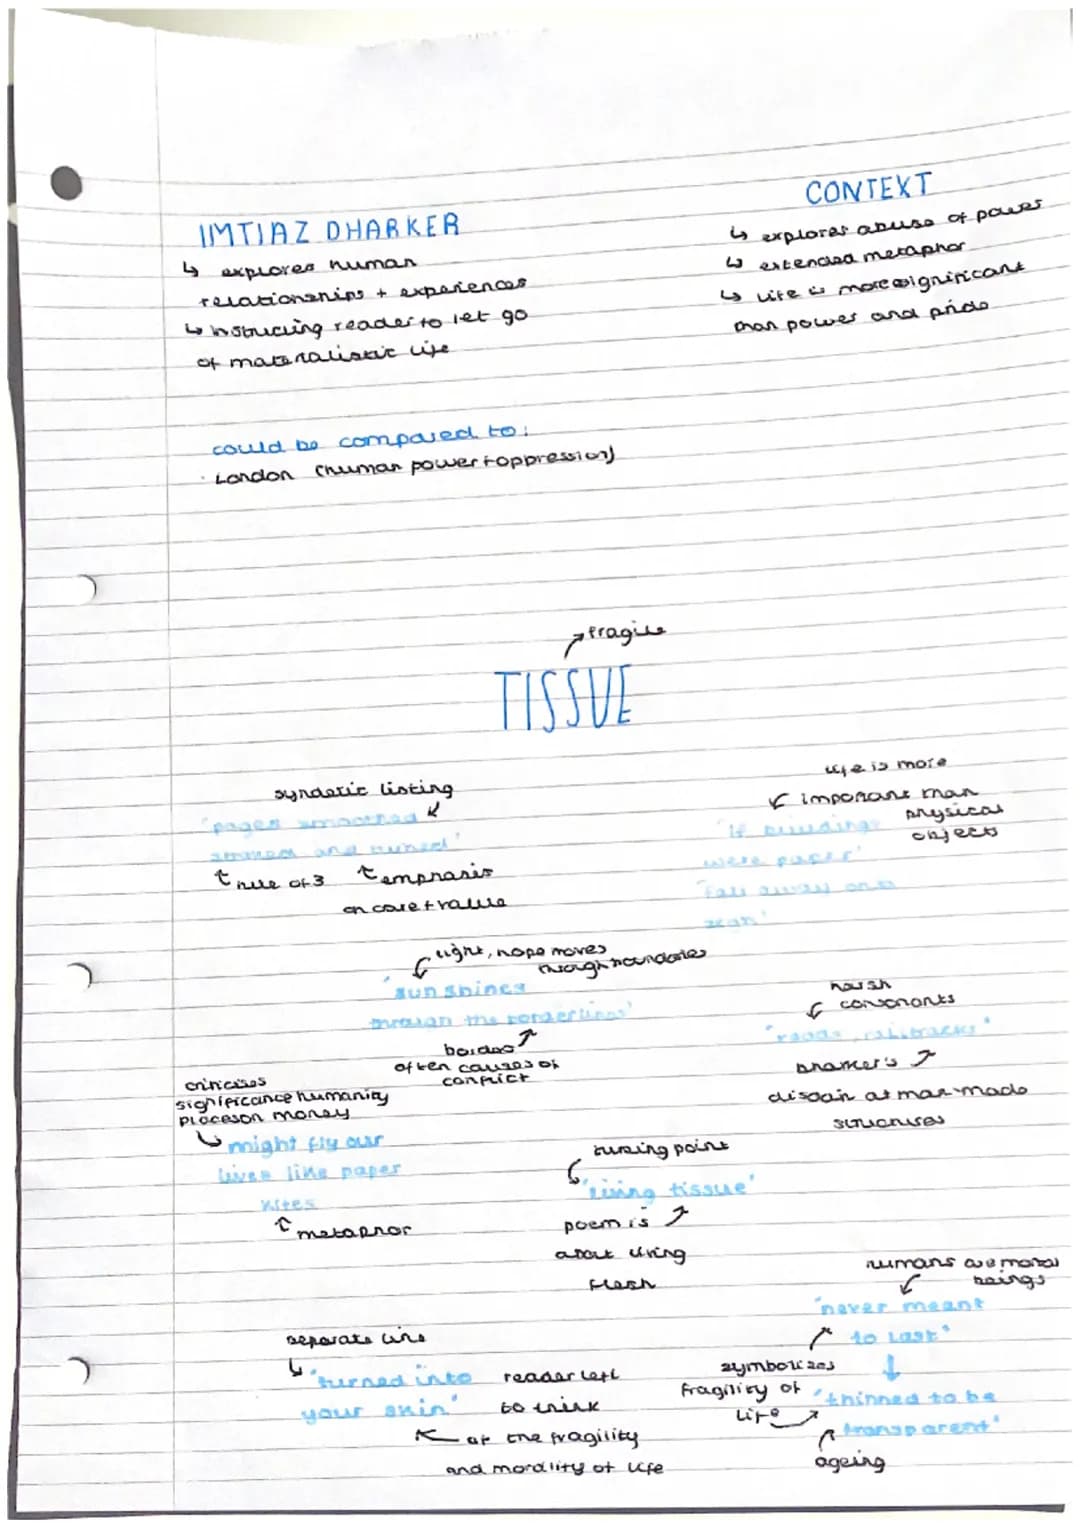 IMTIAZ DHARKER
↳ explores human
relationships + experiences
↳ instructing reader to let go
of materialistic life
CONTEXT
↳ explores abuse of power
↳ extended metaphor
↳ life is more significant
than power and pride
could be compared to:
· London (human power + oppression)
fragile
TISSUE
syndetic listing
'pages smoothed
and
rule of 3
emphasis
on care + value
life is more
important than
physical
objects
'If buildings
were paper'
'fall away on a
'
light, hope moves
through boundaries
'sun shines
through the borderlines'
borders
often causes of
conflict
harsh
consonants
'roads, railtracks'
Dharker's
disdain at man-made
structures
criticises
significance humanity
places on money
might fly our
lives like paper
kites
metaphor
turning point
'living tissue'
poem is
about living
flesh
humans are mortal
beings
'never meant
to last'
symbolizes
fragility of
life
'thinned to be
transparent'
ageing
separate line
'turned into
your skin'
reader left
to think
of the fragility
and mortality of life